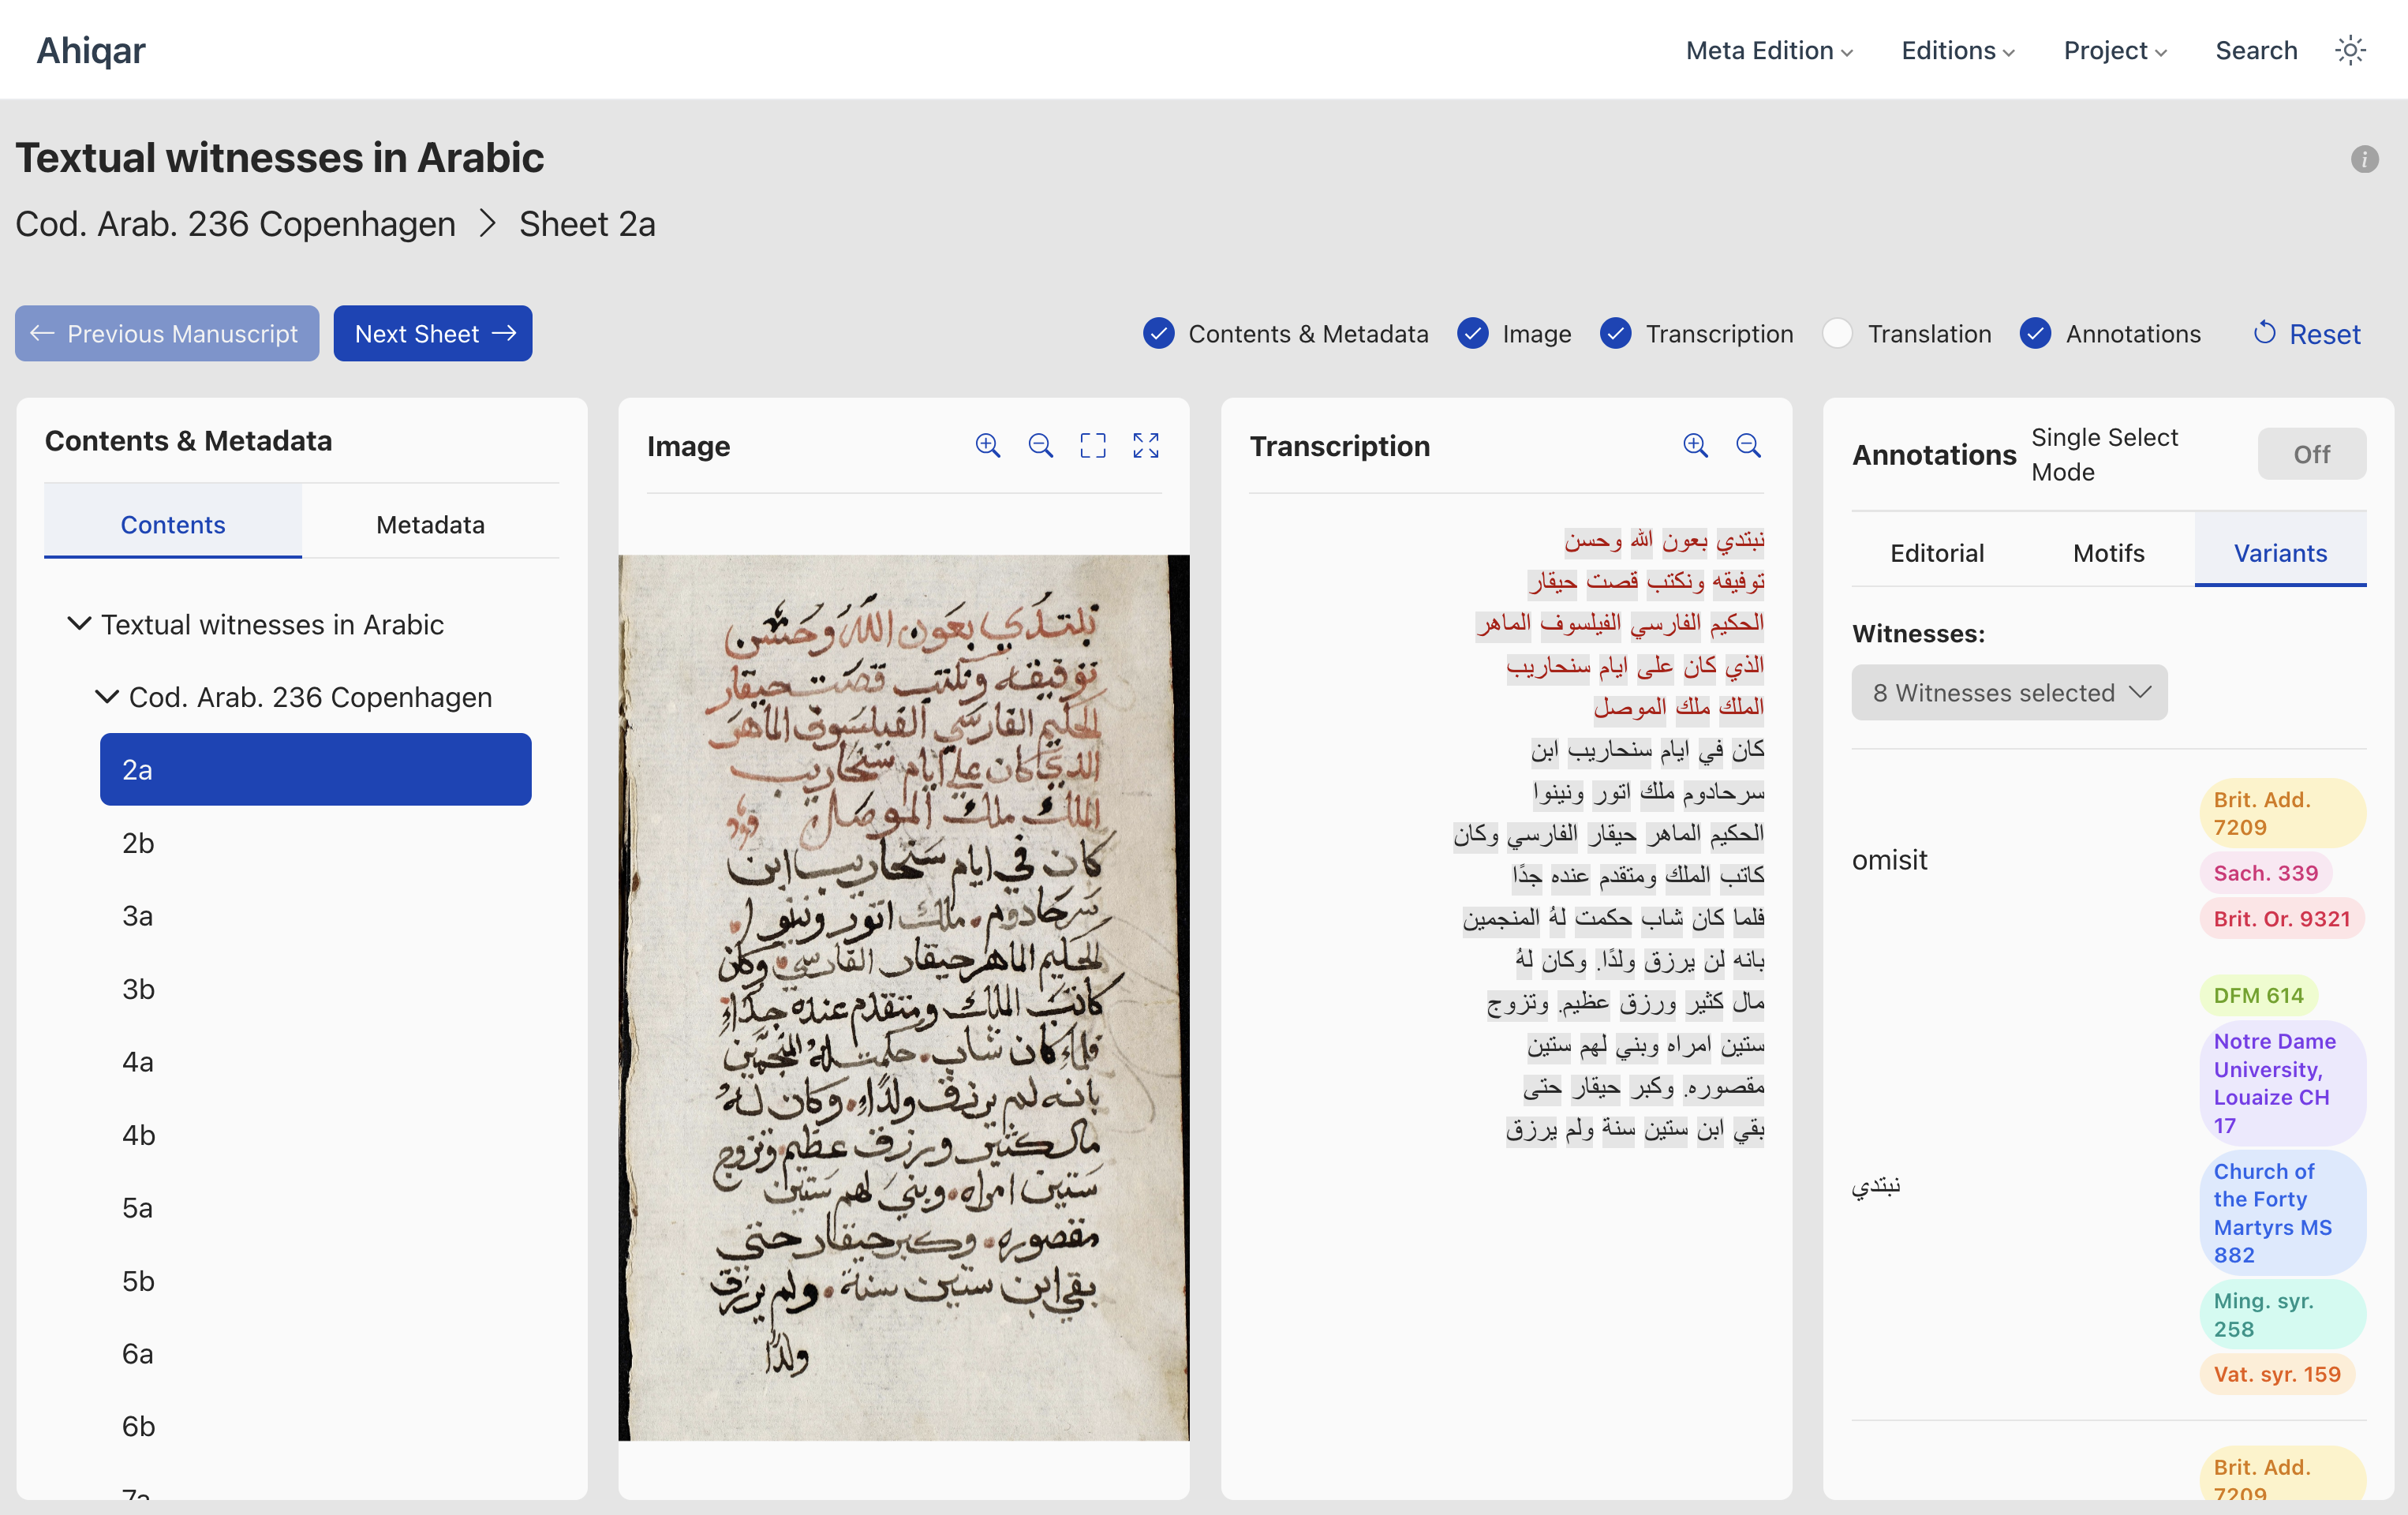 Ahiqar
Meta Edition
Editions
Project
Search
Textual witnesses in Arabic
i
Cod. Arab. 236 Copenhagen > Sheet 2a
← Previous Manuscript
Next Sheet →
Contents & Metadata
Image
Transcription
Translation
Annotations
Reset
Contents & Metadata
Contents
Metadata
Textual witnesses in Arabic
Cod. Arab. 236 Copenhagen
2a
2b
3a
3b
4a
4b
5a
5b
6a
6b
7a
Image
نبتدي بعون الله وحسن
توفيقه ونكتب قصت حيقار
الحكيم الفارسي الفيلسوف الماهر
الذي كان علي ايام سنحاريب
الملك ملك الموصل
كان في ايام سنحاريب ابن
سرحادوم ملك اتور ونينوا
الحكيم الماهر حيقار الفارسي وكان
كاتب الملك ومتقدم عنده جدًا
فلما كان شاب حكمت لهُ المنجمين
بانه لم يرزق ولدًا وكان لهُ
مال كثير ورزق عظيم وتزوج
ستين امراه وبني لهم ستين
مقصوره وكبر حيقار حتي
بقي ابن ستين سنة ولم يرزق
ولدًا
Transcription
نبتدي بعون الله وحسن
توفيقه ونكتب قصت حيقار
الحكيم الفارسي الفيلسوف الماهر
الذي كان على ايام سنحاريب
الملك ملك الموصل
كان في ايام سنحاريب ابن
سرحادوم ملك اتور ونينوا
الحكيم الماهر حيقار الفارسي وكان
كاتب الملك ومتقدم عنده جدًا
فلما كان شاب حكمت لهُ المنجمين
بانه لن يرزق ولدًا. وكان لهُ
مال كثير ورزق عظيم. وتزوج
ستين امراه وبني لهم ستين
مقصوره. وكبر حيقار حتى
بقي ابن ستين سنة ولم يرزق
Annotations
Single Select
Mode
Off
Editorial
Motifs
Variants
Witnesses:
8 Witnesses selected
omisit
Brit. Add.
7209
Sach. 339
Brit. Or. 9321
نبتدي
DFM 614
Notre Dame
University,
Louaize CH
17
Church of
the Forty
Martyrs MS
882
Ming. syr.
258
Vat. syr. 159
Brit. Add.
7209